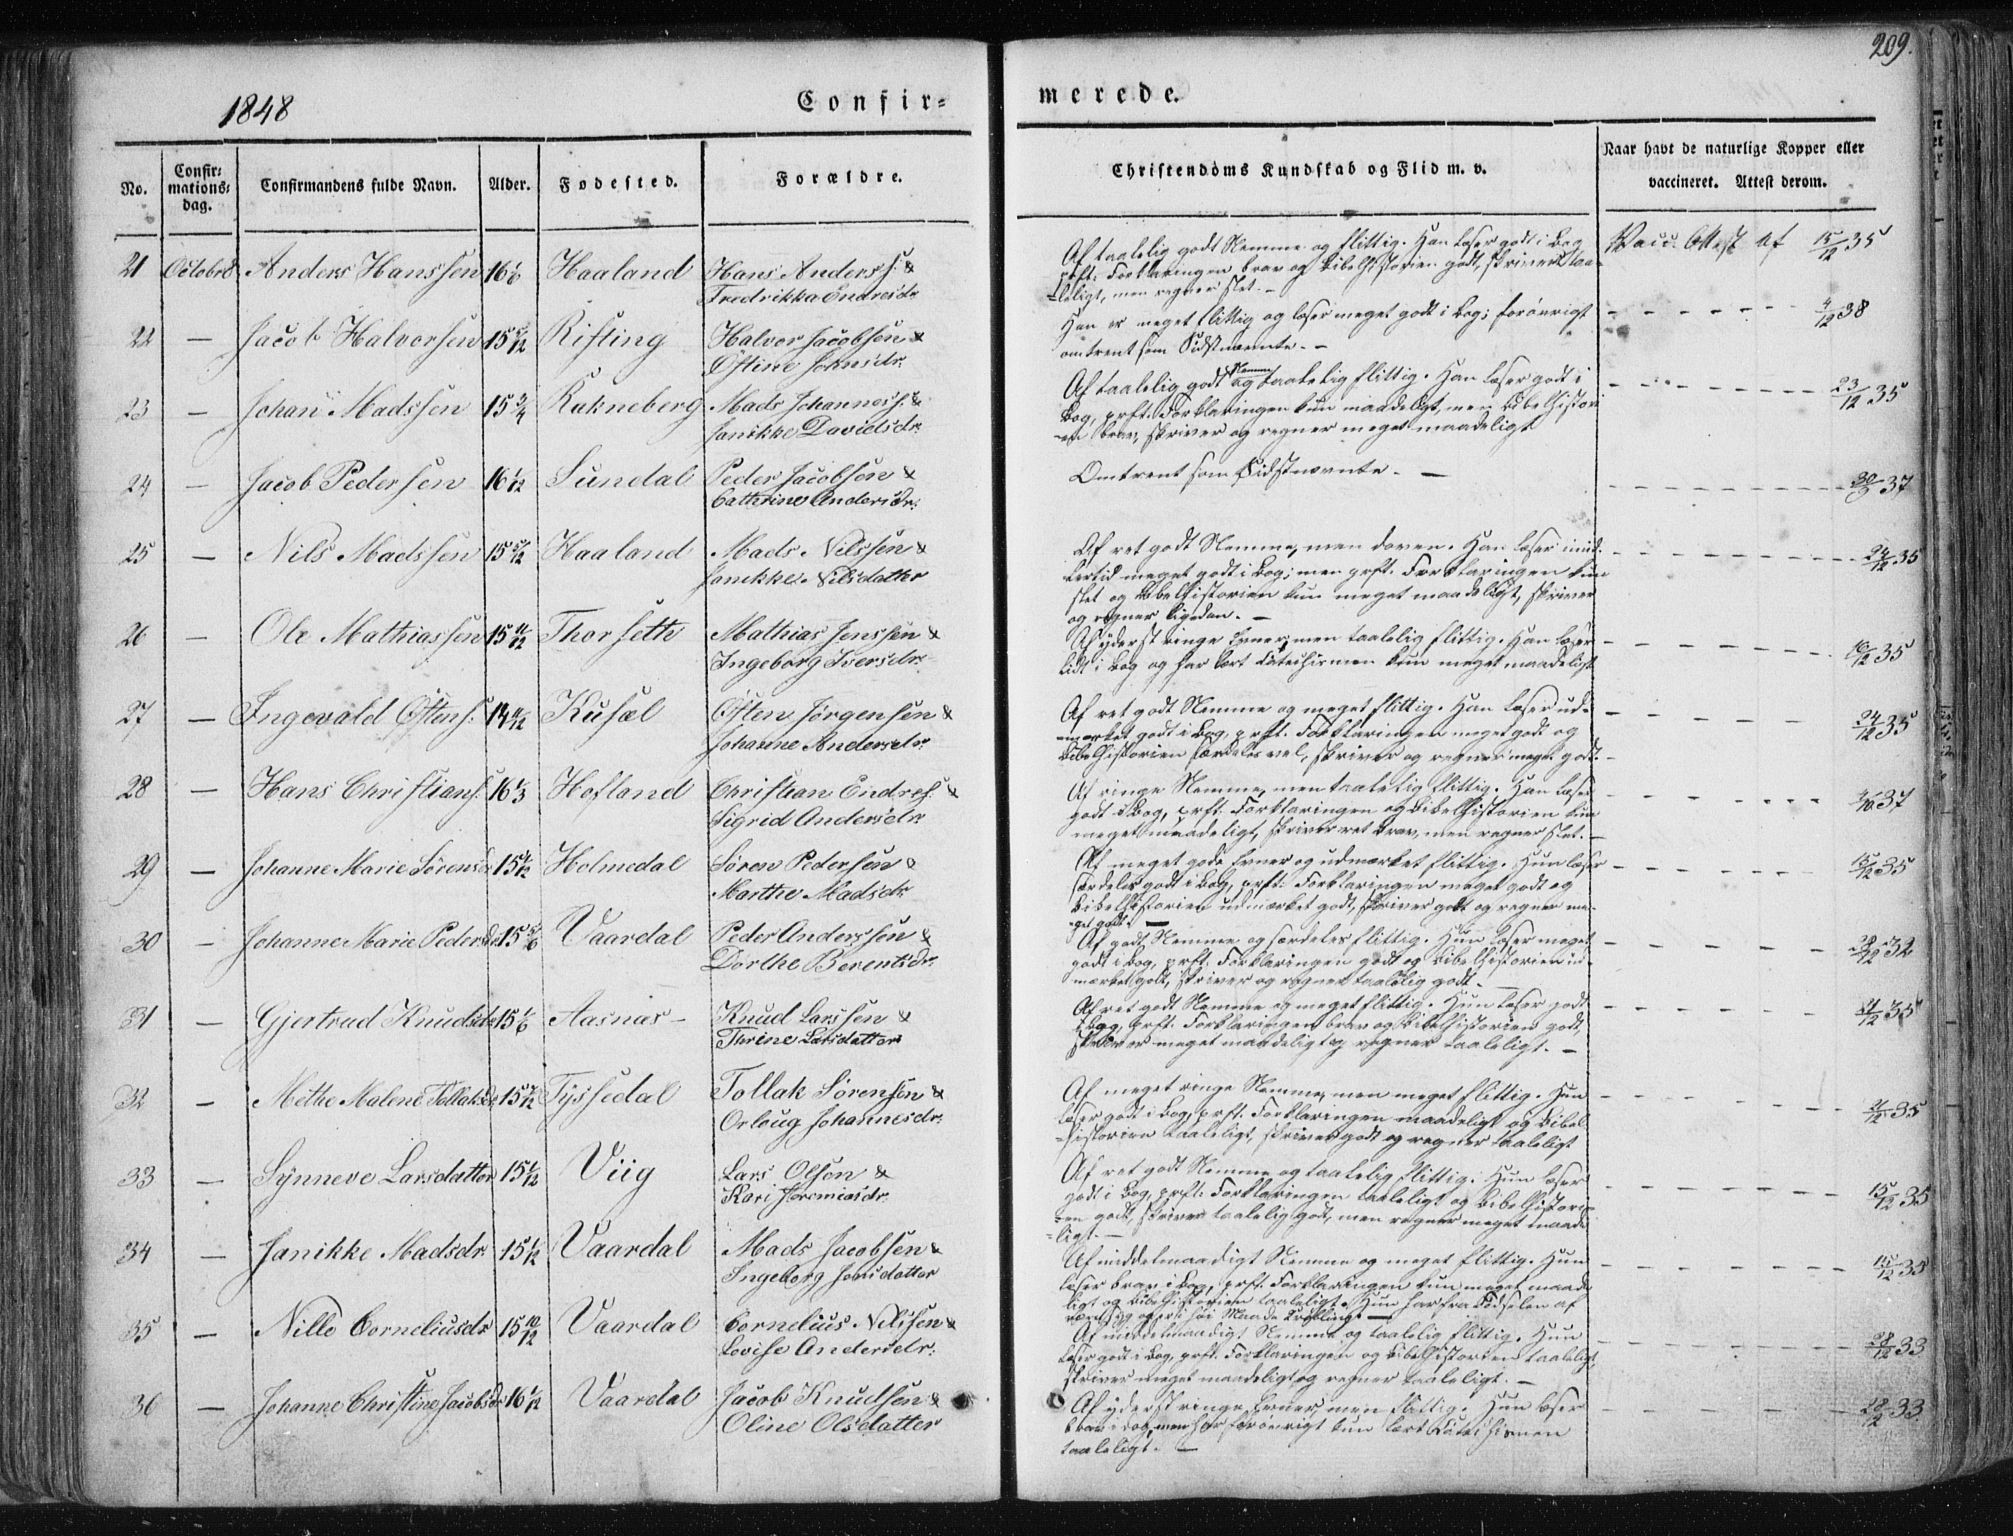 209.
1848
Confir= merede.
No.
Confir:
mations:
dag.
Confirmandens fulde Navn.
Alder.
Fødested.
Forældre.
Christendoms Kundskab og Flid m. v.
Naar havt de naturlige Kopper eller
vaccineret. Attest derom.
21 October 8 Anders Hanssen 16 1/6 Haaland Hans Anders. &
Fredrikka Endresdr
Af taalelig godt Nemme og flittig. Han læser godt i Bog,
prst: Forklaringen brav og Bibelhistorien godt, skriver taa-
leligt, men regner slet. –
Vacc. Attest af 15/12 35
22 – Jacob Halvorsen 15 5/12 Risting Halvor Jacobsen &
Østine Johnsdr.
Han er meget flittig og læser meget godt i Bog; forøvrigt
omtrent som Sidstnævnte. –
4/12 38
23 – Johan Madssen 15 3/4 Kakneberg Mads Johanness. &
Janikke Davidsdr.
Af taalelig godt Nemme og taalelig flittig. Han læser godt i
Bog, prst: Forklaringen kun maadeligt, men Bibelhistori
en brav, skriver og regner meget maadeligt
23/12 35
24 – Jacob Pedersen 16 1/12 Sundal Peder Jacobsen &
Cathrine Andersdr.
Omtrent som Sidstnævnte. –
37
25 – Nils Madssen 15 5/12 Haaland Mads Nilssen &
Janikke Nilsdatter
Af ret godt Nemme, men doven. Han læser imid-
lertid meget godt i Bog; men prst: Forklaringen kun
slet og Bibelhistorien kun meget maadeligt, skriver
og regner ligedan. –
24/12 35
26 – Ole Mathiassen 15 11/12 Thorseth Mathias Jenssen &
Ingeborg Iversdr.
Af yderst ringe Evner, men taalelig flittig. Han læser
lidt i Bog og har lært Catechismen kun meget maadeligt
16/12 35
27 – Ingevald Østens. 14 Kusæl Østen Jørgensen &
Johanne Andersdr.
Af ret godt Nemme og meget flittig. Han læser ud-
mærket godt i Bog, prst: Forklaringen meget godt og
Bibelhistorien særdeles vel, skriver og regner meget godt. –
24/12 35
28 – Hans Christians. 16 1/3 Hofland Christian Endres. &
Sigrid Andersdr.
Af ringe Nemme, men taalelig flittig. Han læser
godt i Bog, prst: Forklaringen og Bibelhistorien kun
meget maadeligt, skriver ret brav, men regner slet. –
37
29 – Johanne Marie Sørensd. 15 Holmedal Søren Pedersen &
Marthe Madsdr.
Af meget gode Evner og udmærket flittig. Hun læser
særdeles godt i Bog, prst: Forklaringen meget godt og
Bibelhistorien udmærket godt, skriver godt og regner me-
get godt. –
15/12 35
30 – Johanne Marie Pedersdr. 15 5/6 Vaardal Peder Anderssen &
Dorthe Berentsdr.
Af godt Nemme og særdeles flittig. Hun læser meget
godt i Bog, prst: Forklaringen godt og Bibelhistorien ud-
mærket godt, skriver og regner taalelig godt. –
32
31 – Gjertrud Knudsdr. 15 1/6 Aasnæs – Knud Larssen &
Thrine Larsdatter
Af ret godt Nemme og meget flittig. Hun læser godt
i Bog, prst: Forklaringen brav og Bibelhistorien godt,
skriver meget maadeligt og regner taaleligt. –
35
32 – Methe Malene Tollaksdr. 15 7/12 Tyssedal Tollak Sørensen &
Orloug Johannesdr.
Af meget ringe Nemme, men meget flittig. Hun
læser godt i Bog, prst: Forklaringen maadeligt og Bibel-
historien taaleligt, skriver godt og regner taaleligt
35
33 – Synneve Larsdatter 15 1/12 Viig Lars Olsen &
Kari Jeremiasdr.
Af ret godt Nemme og taalelig flittig. Hun læser
godt i Bog, prst: Forklaringen taaleligt og Bibelhistori-
en godt, skriver taalelig godt, men regner meget maade
ligt. –
15/12 35
34 – Janikke Madsdr. 15 1/12 Vaardal Mads Jacobsen &
Ingeborg Jensdatter
Af middelmaadigt Nemme og meget flittig. Hun
læser brav i Bog, prst: Forklaringen kun meget maade
ligt og Bibelhistorien taaleligt. Hun har fra Fødselen af
været og i høi Maade Krøbling. –
15/12 35
35 – Nille Corneliusdr. 15 10/12 Vaardal Cornelius Nilssen &
Lovise Andersdr.
Af middelmaadigt Nemme og taalelig flittig. Hun
læser godt i Bog, prst: Forklaringen og Bibelhistorien taaleligt,
skriver meget maadeligt og regner taaleligt. –
28/12 33
36 – Johanne Christine Jacobsdr. 16 1/12 Vaardal Jacob Knudsen &
Oline Olsdatter
Af yderst ringe Evner, men flittig. Hun læser
brav i Bog, men har forøvrigt kun lært Catechismen
taaleligt. –
33